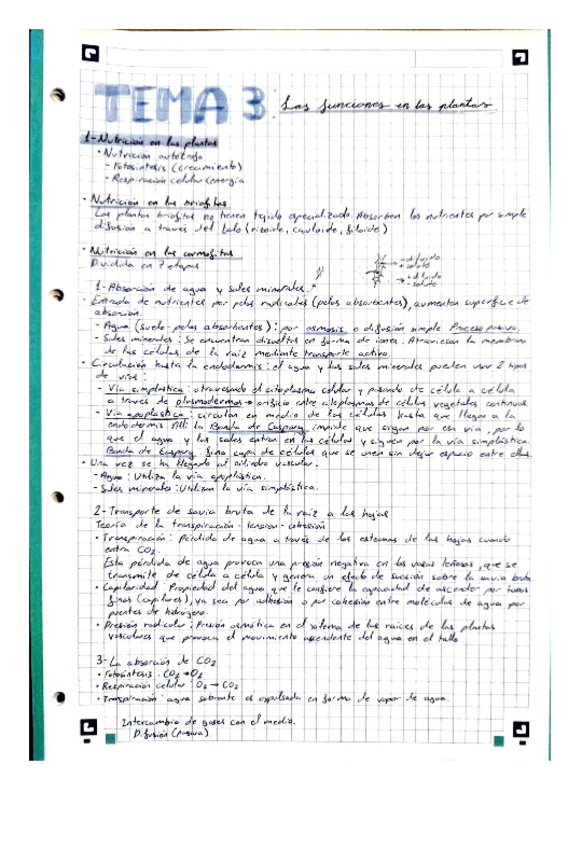 TEMA 3: Las funciones en las plantas
1- Nutrición en las plantas
• Nutrición autótrofa
- Fotosíntesis (crecimiento)
- Respiración celular (energía
• Nutrición en las briofitas
Las plantas briofitas no tienen tejido especializado. Absorben los nutrientes por simple
difusión a través del talo (rizoide, cauloide, filoide)
• Nutrición en las cormofitas
Dividida en 7 etapas
1- Absorción de agua y sales minerales.
• Entrada de nutrientes por pelos radicales (pelos absorbentes), aumentan superficie de
absorción.
- Agua (suelo - pelos absorbentes): por osmosis o difusión simple Proceso pasivo.
- Sales minerales: Se encuentran disueltas en forma de iones. Atraviesan la membrana
de las células de la raiz mediante transporte activo.
• Circulación hasta la endodermis: el agua y las sales minerales pueden usar 2 tipos
de vías:
- Vía simplástica: atravesando el citoplasma celular y pasando de célula a célula
a través de plasmodermos → orificio entre citoplasmas de células vegetales continuas.
- Vía apoplástica: circulan en medio de las células hasta que llegan a la
endodermis. Allí la Banda de Caspary impide que sigan por esa vía, por lo
que el agua y las sales entran en las células y siguen por la vía simplástica.
Banda de Caspary: Una capa de células que se unen sin dejar espacio entre ellas.
• Una vez se ha llegado al cilindro vascular:
- Agua: Utiliza la vía apoplástica.
- Sales minerales: Utilizan la vía simplástica.
2- Transporte de savia bruta de la raiz a las hojas
Teoría de la transpiración - tensión - cohesión
• Transpiración: Pérdida de agua a través de los estomas de las hojas cuando
entra CO2.
Esta pérdida de agua provoca una presión negativa en los vasos leñosos, que se
transmite de célula a célula y genera un efecto de succión sobre la savia bruta.
• Capilaridad: Propiedad del agua que le confiere la capacidad de ascender por tubos
finos (capilares), ya sea por adhesión o por cohesión entre moléculas de agua por
puentes de hidrógeno.
• Presión radicular: Presión osmótica en el xilema de las raices de las plantas
vasculares que provoca el movimiento ascendente del agua en el tallo
3- La absorción de CO2
• Fotosíntesis: CO2 → O2
• Respiración celular: O2 → CO2
• Transpiración: agua sobrante es expulsada en forma de vapor de agua.
Intercambio de gases con el medio.
Difusión (pasiva)